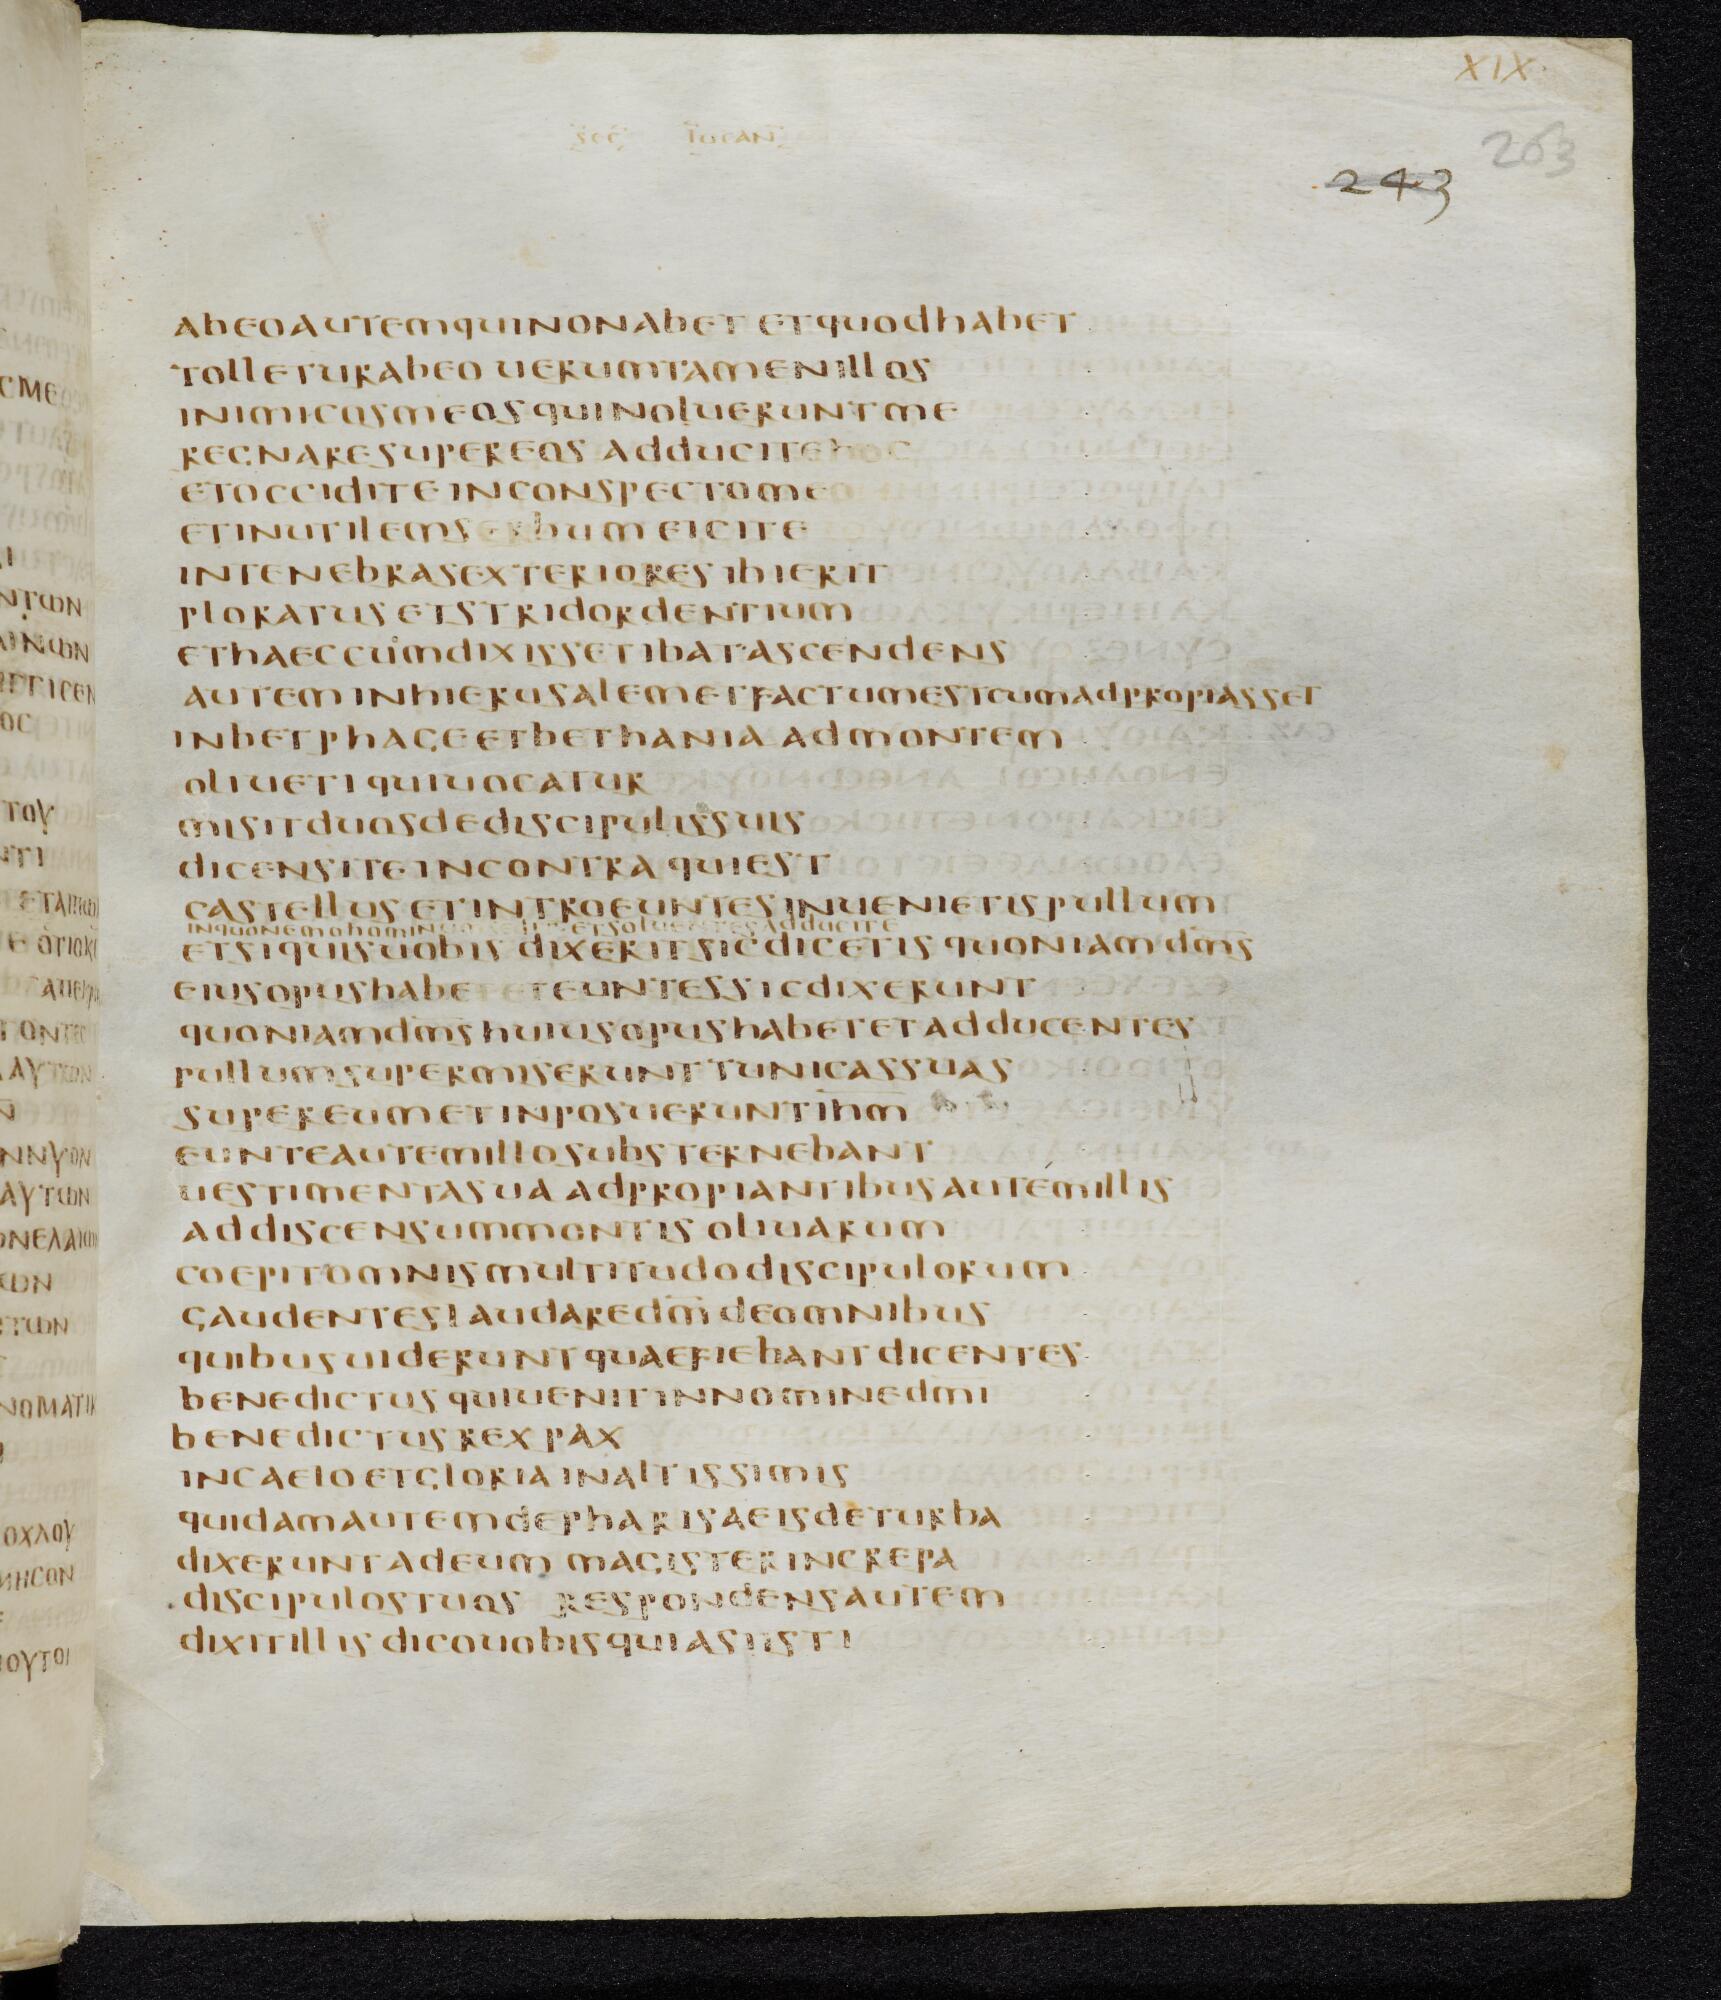 XIX
sec lucan
263
243
ab eo autem qui non abet et quod habet
tolletur ab eo uerumtamen illos
inimicos meos qui noluerunt me
regnare super eos adducite hoc
et occidite in conspecto meo
et inutilem serbum eicite
in tenebras exteriores ibi erit
ploratus et stridor dentium
et haec cum dixisset ibat ascendens
autem in hierusalem et factum est cum adpropiasset
in betphage et bethania ad montem
oliueti qui uocatur
misit duos de discipulis suis
dicens ite in contra qui est
castellus et introeuntes inuenietis pullum
in quo nemo hominum et soluentes adducite
et si quis uobis dixerit sic dicetis quoniam dms
eius opus habe et euntes sic dixerunt
quoniam dms huius opus habet et adducentes
pullum supermiserunt tunicas suas
super eum et inposuerunt ihm
eunte autem illo substernebant
uestimenta sua adpropiantibus autem illis
ad discensum montis oliuarum
coepit omnis multitudo discipulorum
gaudentes laudare dm de omnibus
quibus uiderunt quae fiebant dicentes
benedictus qui uenit in nomine dmi
benedictus rex pax
in caelo et gloria in altissimis
quidam autem de pharisaeis de turba
dixerunt ad eum magister increpa
discipulos tuos respondens autem
dixit illis dico uobis quia si isti